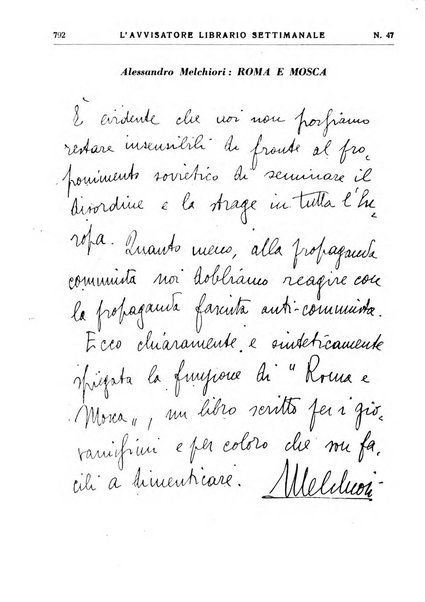 792 L'AVVISATORE LIBRARIO SETTIMANALE N. 47
Alessandro Melchiori: ROMA E MOSCA
È evidente che noi non possiamo
restare insensibili di fronte al pro-
ponimento sovietico di seminare il
disordine e la strage in tutta l'Eu-
ropa. Quanto meno, alla propaganda
comunista noi dobbiamo reagire con
la propaganda fascista anti-comunista.
Ecco chiaramente e sinteticamente
spiegata la funzione di "Roma e
Mosca", un libro scritto per i gio-
vanissimi e per coloro che son fa-
cili a dimenticare.
Melchiori